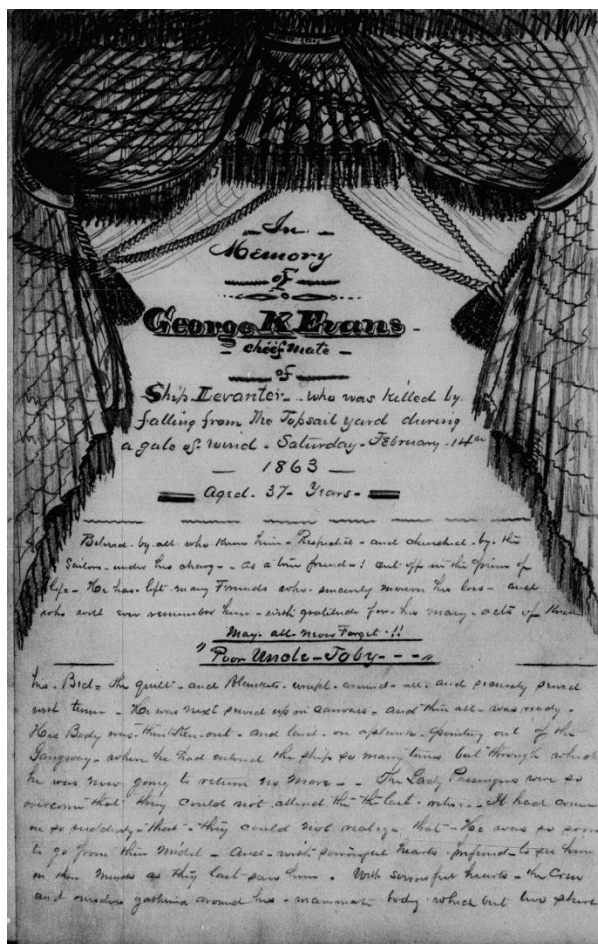 In
Memory
of
George K Evans
chief mate
of
Ship Levanter - who was killed by
falling from the Topsail yard during
a gale of wind - Saturday - February 14th
1863
Aged - 37 - Years -
Beloved - by - all who knew him - Respected - and cherished - by - the
Sailors - under his charge - as a true friend - ! cut off in the prime of
life - He has left many Friends who - sincerely mourn his loss - and
who will ever remember him - with gratitude for - his many - acts of
May - all - never Forget - !!
"Poor Uncle - Toby - - - "
his - Bed - the quilt - and Blankets - around - all - and securely served
with - He was next sewed up in canvass - and then all - was ready -
His Body was - then out - and laid - on a plank - pointing out of the
Gangway - where he had entered the ship so many times but through which
he was now going to return no more - - The Lady Passengers were so
overcome that they could not attend the the last - It had come
on so suddenly - that - they could not realize that - He was so soon
to go from their midst - And - with sorrowful hearts - to see him
in their minds as they last saw him - With sorrowful hearts - the Crew
and ourselves gathered around his - body - which but two